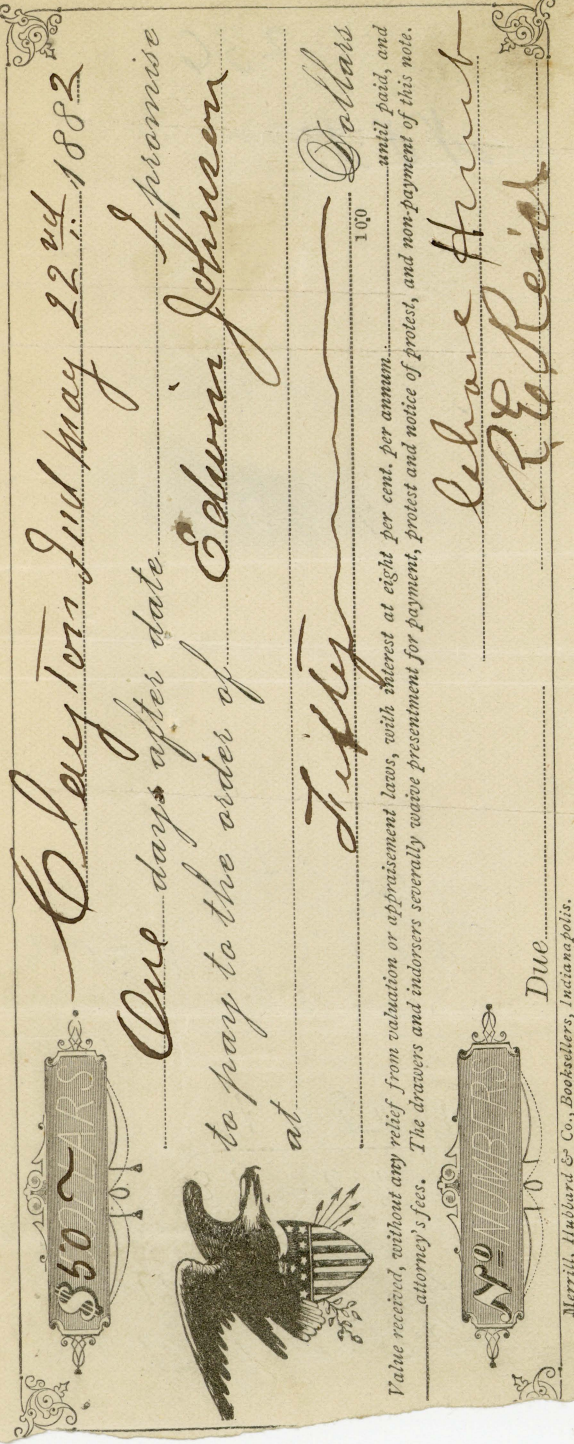 $50 DOLLARS
Clayton Ind May 22nd 1882
One days after date I promise
to pay to the order of Edwin Johnson
at
Fifty Dollars
100
Value received, without any relief from valuation or appraisement laws, with interest at eight per cent. per annum until paid, and
attorney's fees. The drawers and indorsers severally waive presentment for payment, protest and notice of protest, and non-payment of this note.
No NUMBERS
Hunt
Due
R E Reid
Merrill, Hubbard & Co., Booksellers, Indianapolis.